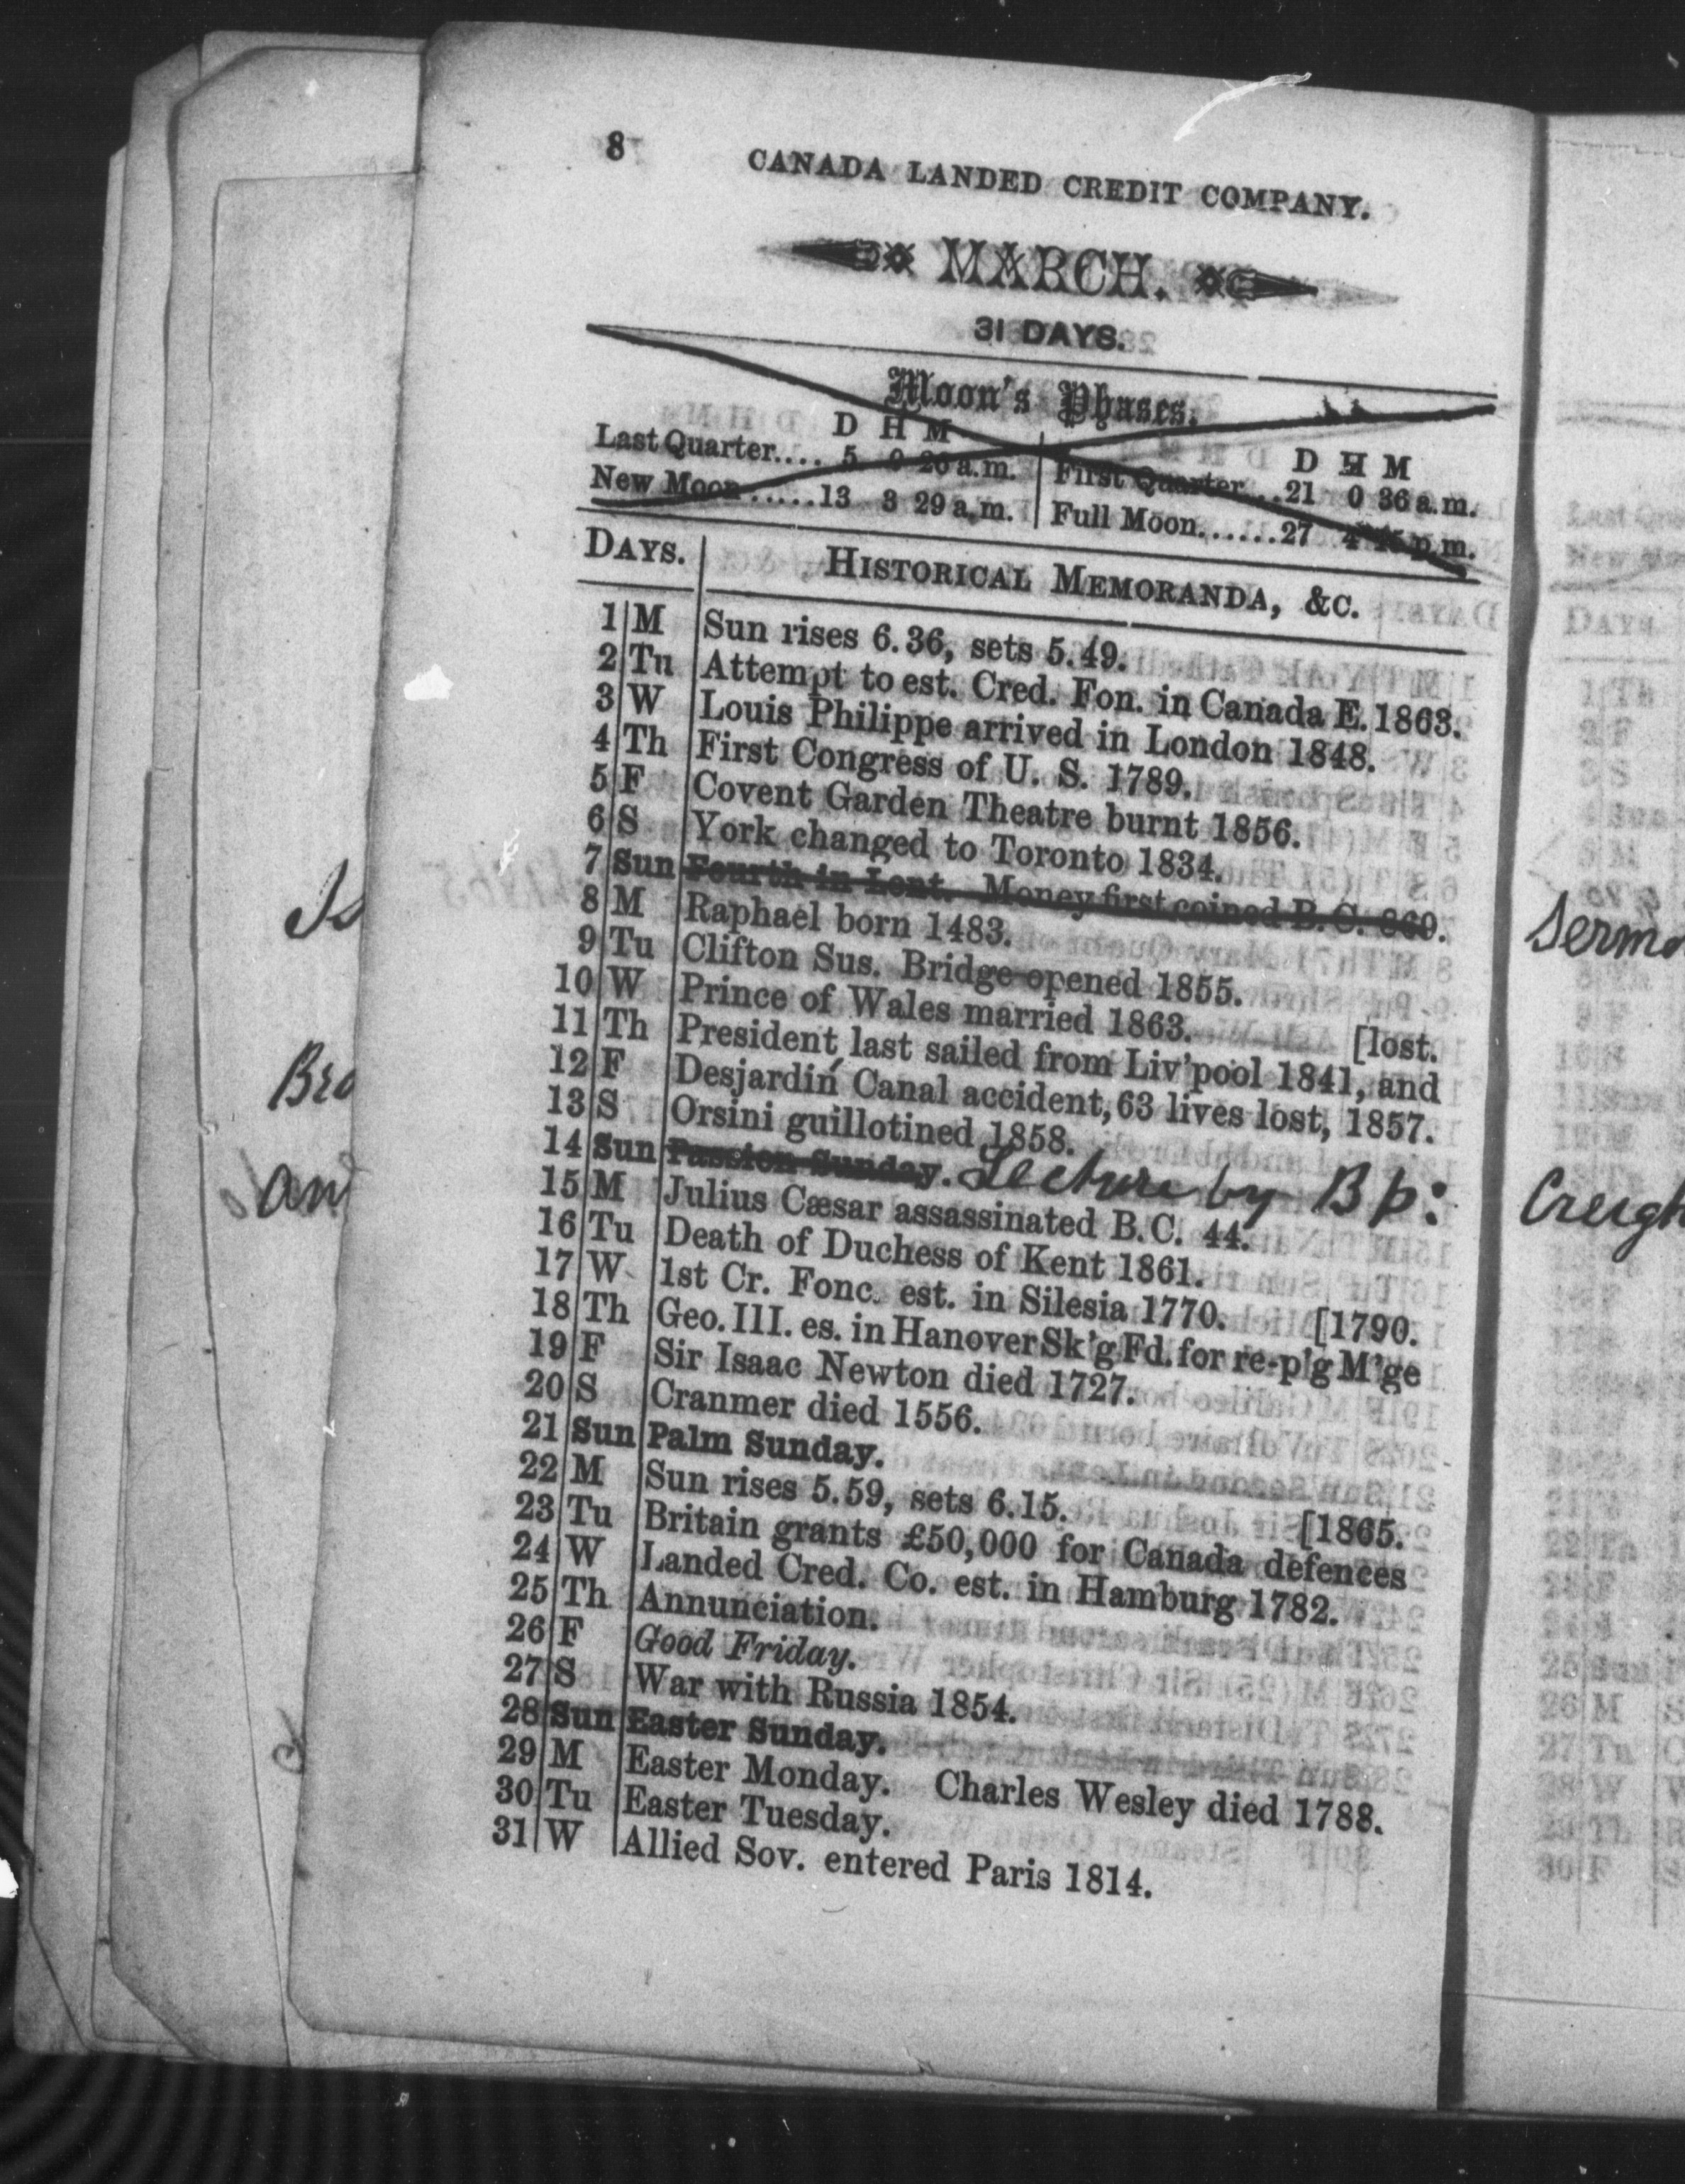 8
CANADA LANDED CREDIT COMPANY.
MARCH.
31 DAYS.
Moon's Phases.
D H M
D H M
Last Quarter.... 5 0 26 a.m.
First Quarter...21 0 36 a.m.
New Moon......13 3 29 a.m.
Full Moon......27 4 45 p.m.
DAYS. HISTORICAL MEMORANDA, &C.
1 M Sun rises 6.36, sets 5.49.
2 Tu Attempt to est. Cred. Fon. in Canada E. 1863.
3 W Louis Philippe arrived in London 1848.
4 Th First Congress of U. S. 1789.
5 F Covent Garden Theatre burnt 1856.
6 S York changed to Toronto 1834.
7 Sun Fourth in Lent. Money first coined B.C. 869.
8 M Raphael born 1483.
9 Tu Clifton Sus. Bridge opened 1855.
10 W Prince of Wales married 1863. [lost.
11 Th President last sailed from Liv'pool 1841, and
12 F Desjardin Canal accident, 63 lives lost, 1857.
13 S Orsini guillotined 1858.
14 Sun Passion Sunday. Lecture by Bp:
15 M Julius Cæsar assassinated B.C. 44.
16 Tu Death of Duchess of Kent 1861.
17 W 1st Cr. Fonc. est. in Silesia 1770. [1790.
18 Th Geo. III. es. in Hanover Sk'g Fd. for re-p'g M'ge
19 F Sir Isaac Newton died 1727.
20 S Cranmer died 1556.
21 Sun Palm Sunday.
22 M Sun rises 5.59, sets 6.15. [1865.
23 Tu Britain grants £50,000 for Canada defences
24 W Landed Cred. Co. est. in Hamburg 1782.
25 Th Annunciation.
26 F Good Friday.
27 S War with Russia 1854.
28 Sun Easter Sunday.
29 M Easter Monday. Charles Wesley died 1788.
30 Tu Easter Tuesday.
31 W Allied Sov. entered Paris 1814.
Bro
an
Sermo
Creigh
DAYS
1 Th
2 F
3 S
26 M
27 Tu
28 W
29 Th
30 F